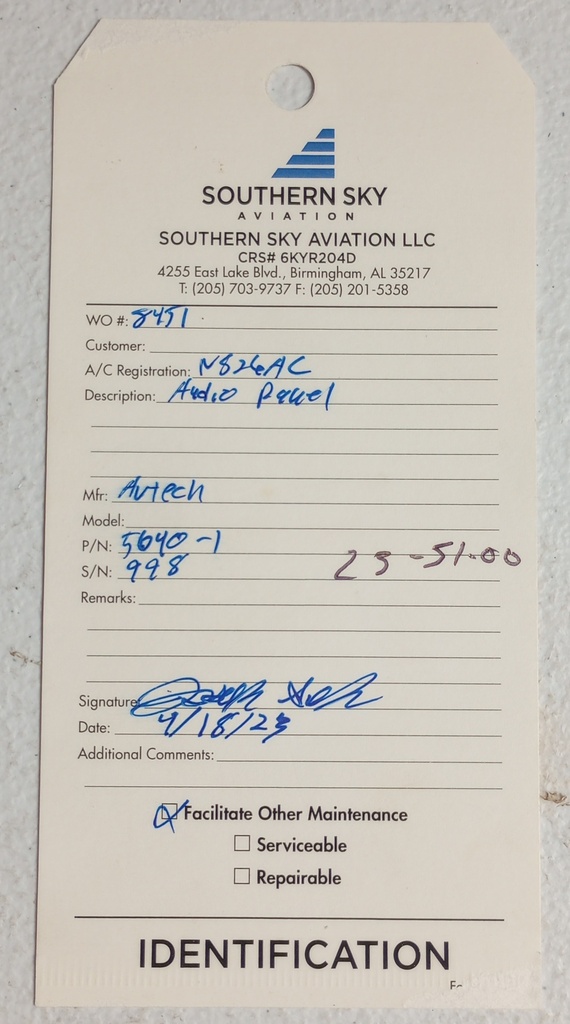 SOUTHERN SKY
AVIATION
SOUTHERN SKY AVIATION LLC
CRS# 6KYR204D
4255 East Lake Blvd., Birmingham, AL 35217
T: (205) 703-9737 F: (205) 201-5358
WO #: 8451
Customer:
A/C Registration: N826AC
Description: Audio Panel
Mfr: Avtech
Model:
P/N: 5640-1
S/N: 998
23-51.00
Remarks:
Signature
Date: 4/18/23
Additional Comments:
Facilitate Other Maintenance
Serviceable
Repairable
IDENTIFICATION